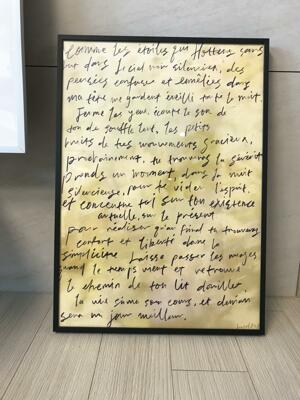 Comme les étoiles qui flottent sans
but dans le ciel noir silencieux, des
pensées confuses et emmêlées dans
ma tête me gardent éveillé toute la nuit.
Ferme les yeux, écoute le son de
ton souffle lent, les petits
bruits de tes mouvements gracieux,
prochainement, tu trouveras la sérénité
Prends un moment, dans la nuit
silencieuse, pour te vider l'esprit.
et concentre toi sur ton existence
actuelle, sur le présent
pour réaliser qu'au final tu trouveras
confort et liberté dans la
simplicité Laisse passer les nuages
quand le temps vient et retrouve
le chemin de ton lit douillet.
la vie suit son cours, et demain
sera un jour meilleur.